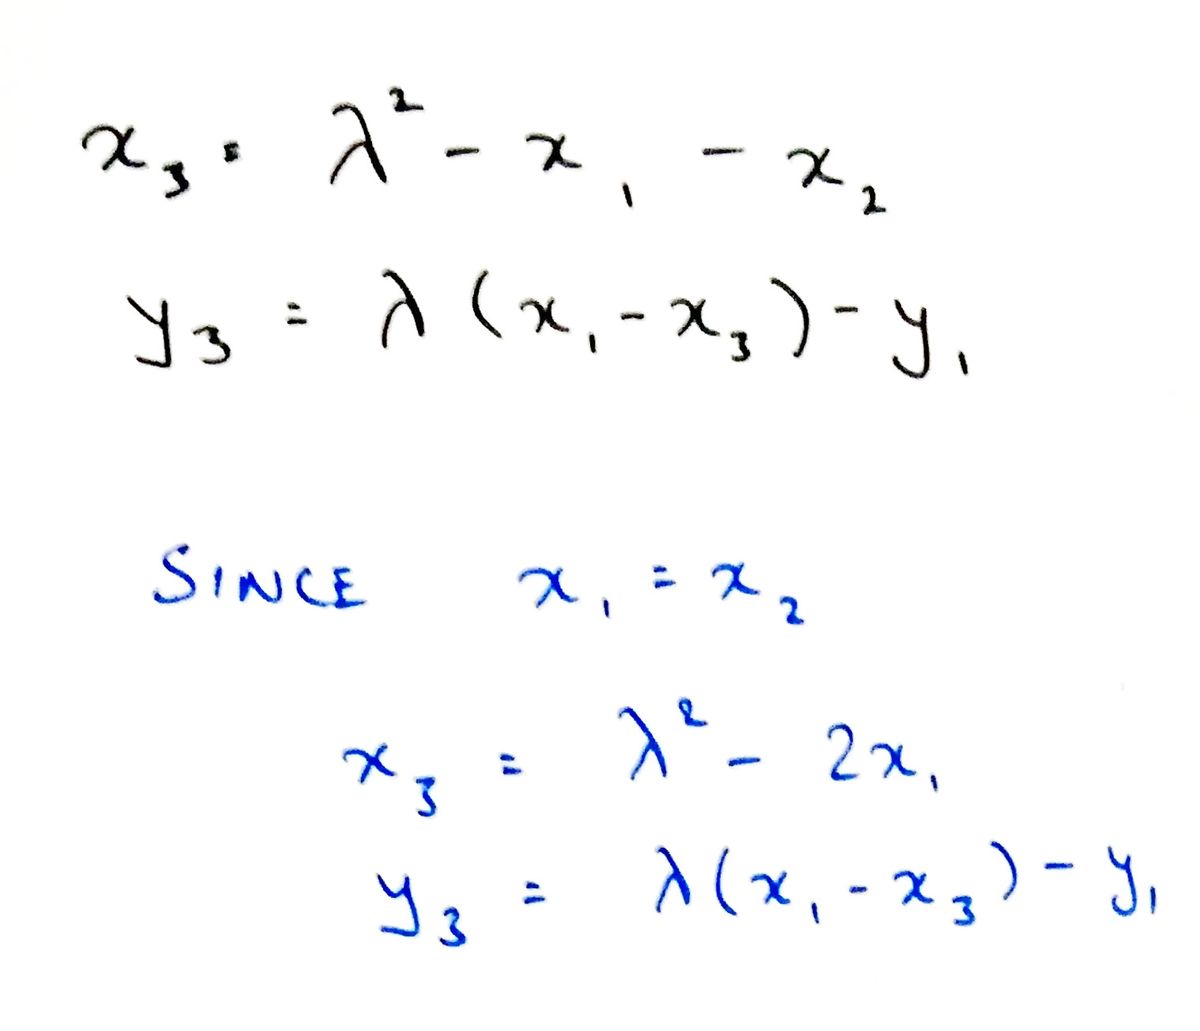 x₃ = λ² - x₁ - x₂
y₃ = λ (x₁ - x₃) - y₁
SINCE x₁ = x₂
x₃ = λ² - 2x₁
y₃ = λ(x₁ - x₃) - y₁